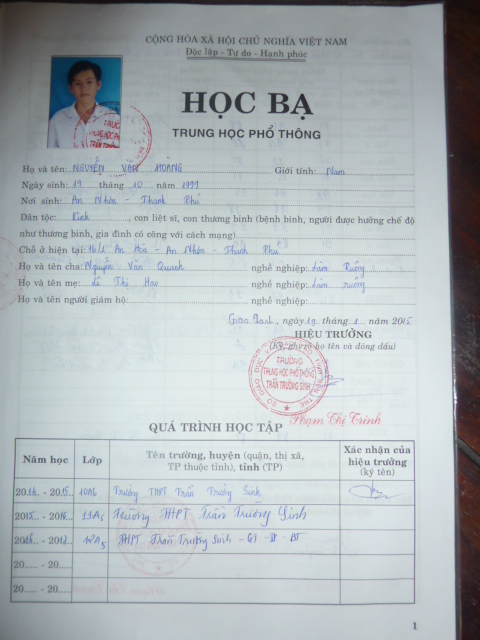 CỘNG HÒA XÃ HỘI CHỦ NGHĨA VIỆT NAM
Độc lập - Tự do - Hạnh phúc
HỌC BẠ
TRUNG HỌC PHỔ THÔNG
Họ và tên: NGUYỄN VĂN HOÀNG Giới tính: Nam
Ngày sinh: 19 tháng 10 năm 1999
Nơi sinh: An Nhơn - Thạnh Phú
Dân tộc: Kinh, con liệt sĩ, con thương binh (bệnh binh, người được hưởng chế độ
như thương binh, gia đình có công với cách mạng)
Chỗ ở hiện tại: An Hòa - An Nhơn - Thạnh Phú
Họ và tên cha: Nguyễn Văn nghề nghiệp: Làm Ruộng
Họ và tên mẹ: Lê Thị nghề nghiệp: Làm ruộng
Họ và tên người giám hộ: nghề nghiệp:
Giao Thạnh, ngày 19 tháng 1 năm 2015
HIỆU TRƯỞNG
(Ký, ghi rõ họ tên và đóng dấu)
TRƯỜNG
TRUNG HỌC PHỔ THÔNG
TRẦN TRƯỜNG SINH
Phạm Thị Trinh
QUÁ TRÌNH HỌC TẬP
Năm học Lớp Tên trường, huyện (quận, thị xã, TP thuộc tỉnh), tỉnh (TP) Xác nhận của hiệu trưởng (ký tên)
2014 - 2015 10A6 Trường THPT Trần Trường Sinh
2015 - 2016 11A5 Trường THPT Trần Trường Sinh
2016 - 2017 12A5 THPT Trần Trường Sinh - GT - TP - BT
20 - 20
20 - 20
1